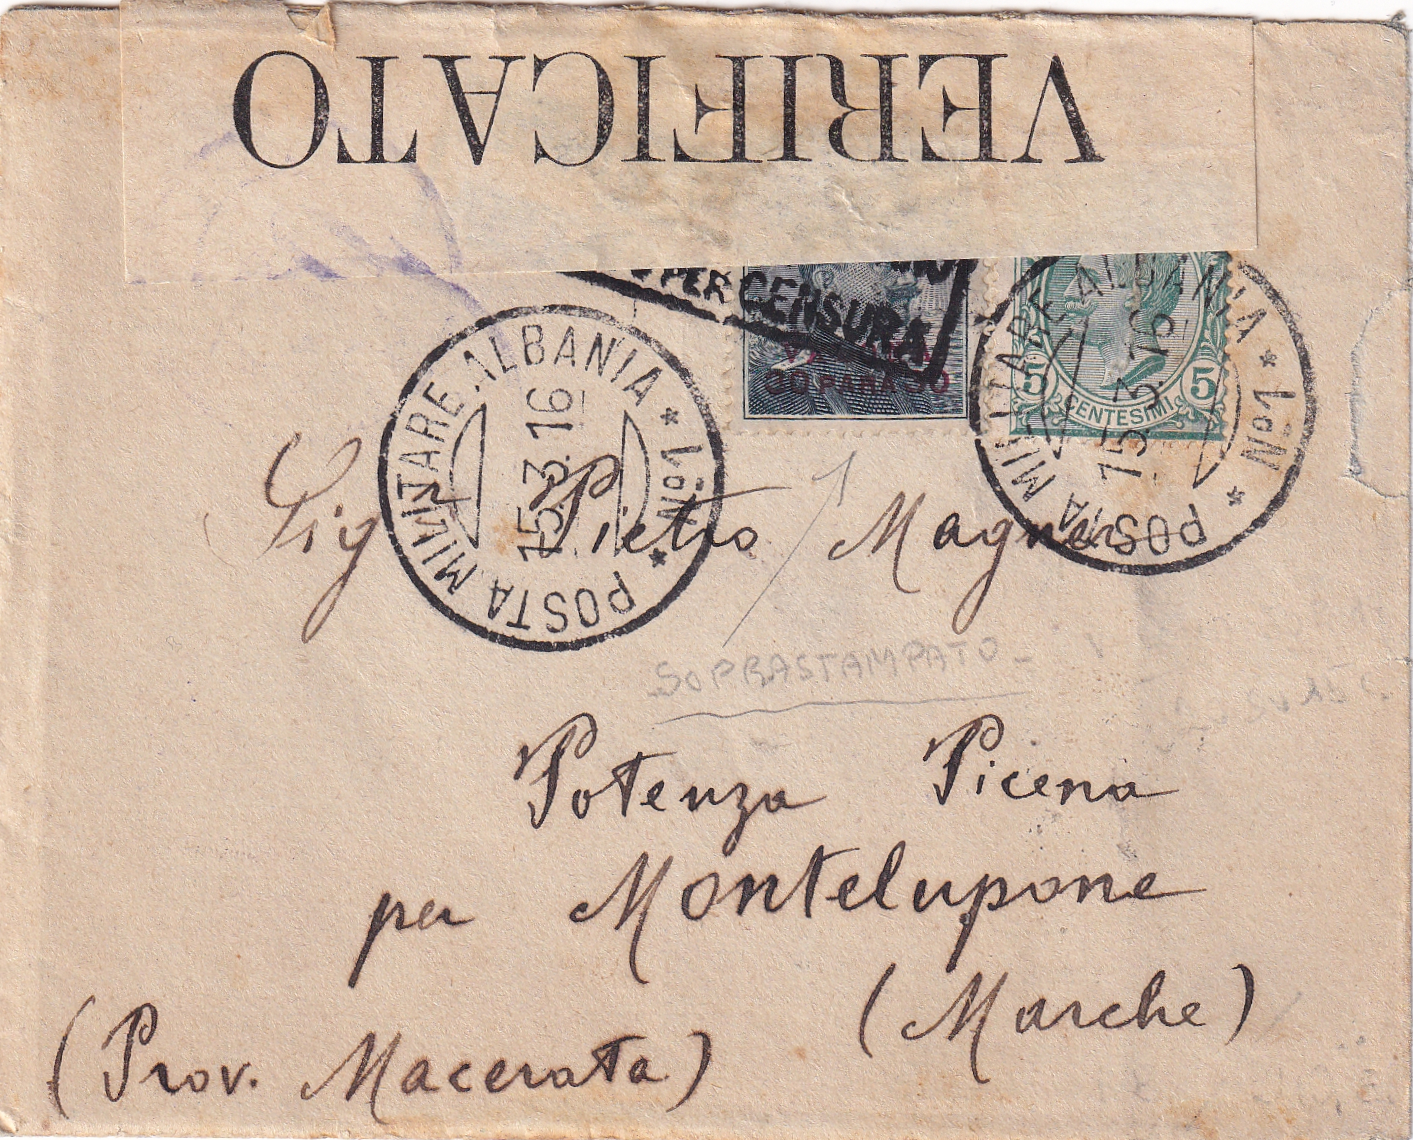 VERIFICATO
PER CENSURA
30 PARA 30
5 CENTESIMI 5
POSTA MILITARE ALBANIA * No1 *
15.3.16
POSTA MILITARE ALBANIA * No1 *
15.3.16
Sig Pietro Magner
SOPRASTAMPATO
Potenza Picena
per Montelupone
(Marche)
(Prov. Macerata)